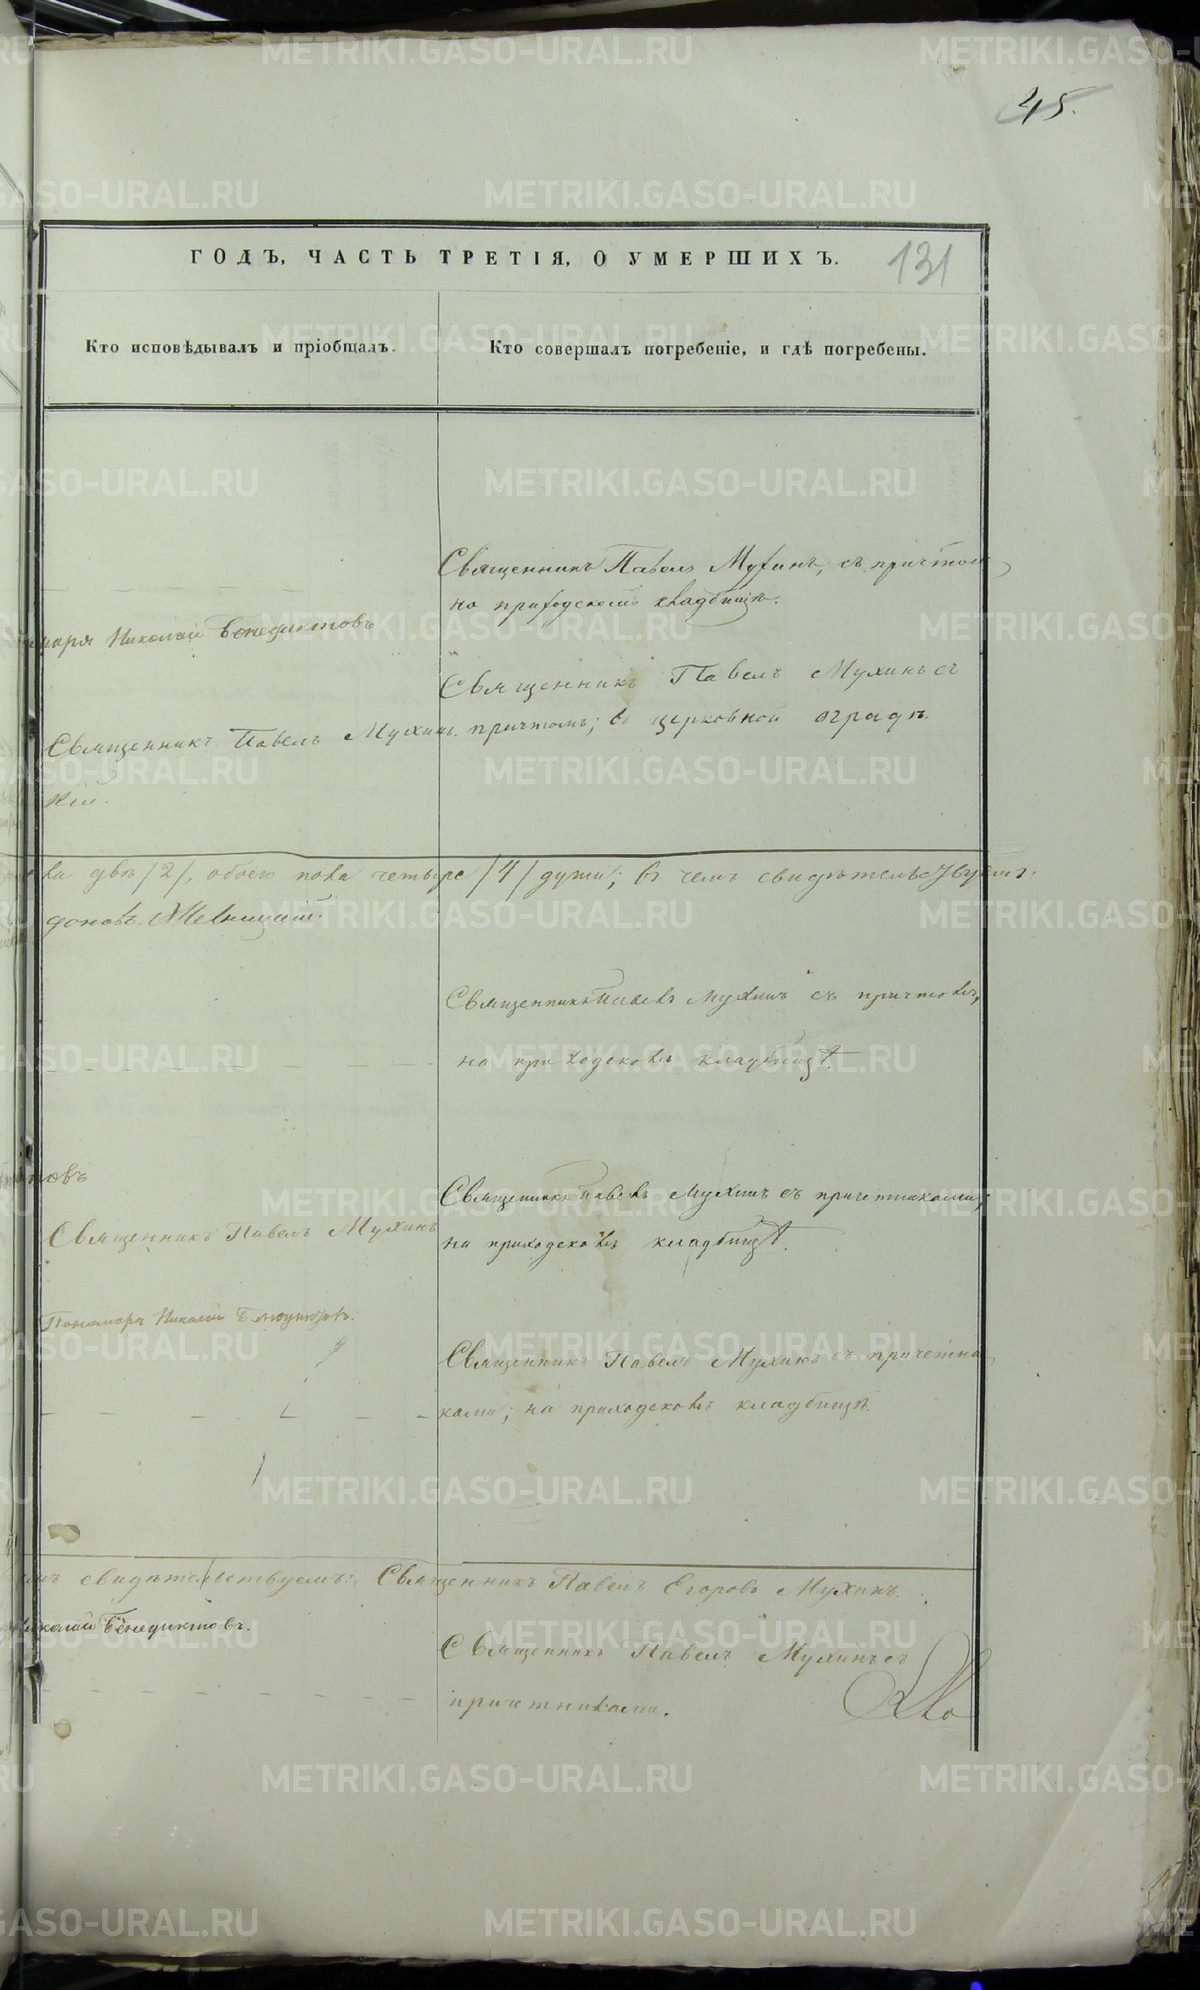 45.
ГОДЪ, ЧАСТЬ ТРЕТІЯ, О УМЕРШИХЪ.
131
Кто исповѣдывалъ и пріобщалъ.
Кто совершалъ погребеніе, и гдѣ погребены.
Священникъ Павелъ Мухинъ, съ причтомъ
на приходскомъ кладбищѣ.
Николай Бенедиктовъ
Священникъ Павелъ Мухинъ съ
причтомъ; въ церковной оградѣ.
Священникъ Павелъ Мухинъ.
двѣ /2/, обоего пола четыре /4/ души; въ чемъ свидѣтельствуемъ:
Священникъ Павелъ Мухинъ съ причтомъ,
на приходскомъ кладбищѣ.
Священникъ Павелъ Мухинъ съ причетниками;
на приходскомъ кладбищѣ.
Священникъ Павелъ Мухинъ
Пономарь Николай Бенедиктовъ.
Священникъ Павелъ Мухинъ съ причетни
ками; на приходскомъ кладбищѣ.
свидѣтельствуемъ: Священникъ Павелъ Егоровъ Мухинъ.
Николай Бенедиктовъ.
Священникъ Павелъ Мухинъ съ
причетниками.
METRIKI.GASO-URAL.RU